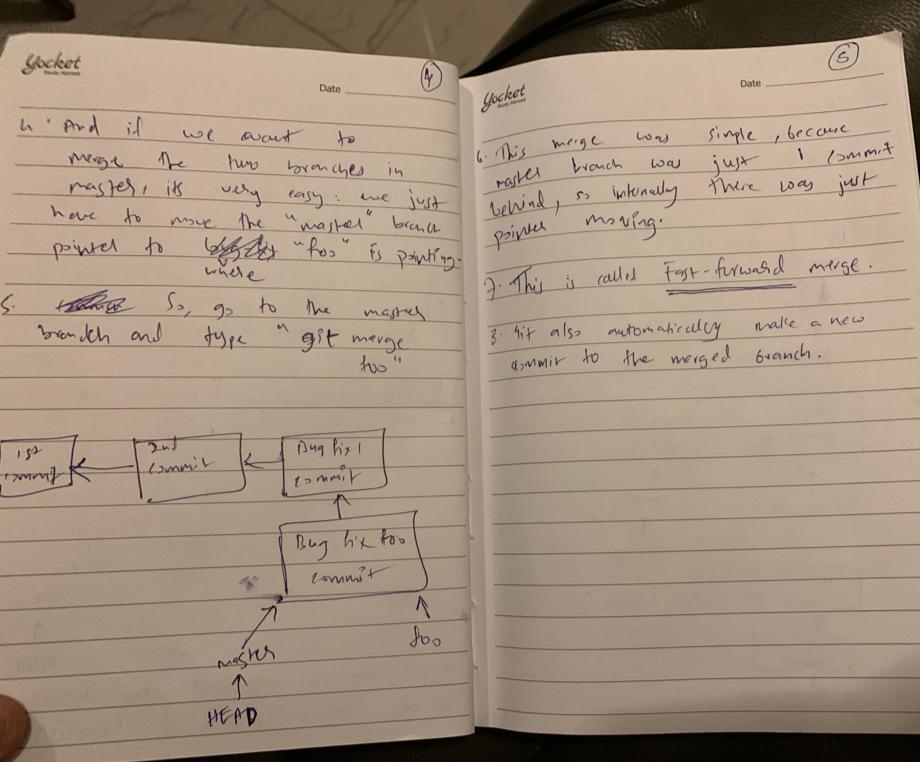 Yocket
Study Abroad
4
Date
4. And if we want to
merge the two branches in
master, its very easy: we just
have to move the "master" branch
pointer to "foo" is pointing.
where
5. So, go to the master
branch and type "git merge
foo"
1st
commit
2nd
commit
Bug fix 1
commit
Bug fix foo
commit
master
foo
HEAD
Yocket
Study Abroad
5
Date
6. This merge was simple, because
master branch was just 1 commit
behind, so internally there was just
pointer moving.
7. This is called Fast-forward merge.
8. Git also automatically make a new
commit to the merged branch.